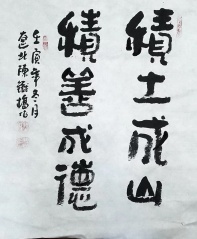 積土成山
積善成德
壬寅年冬月